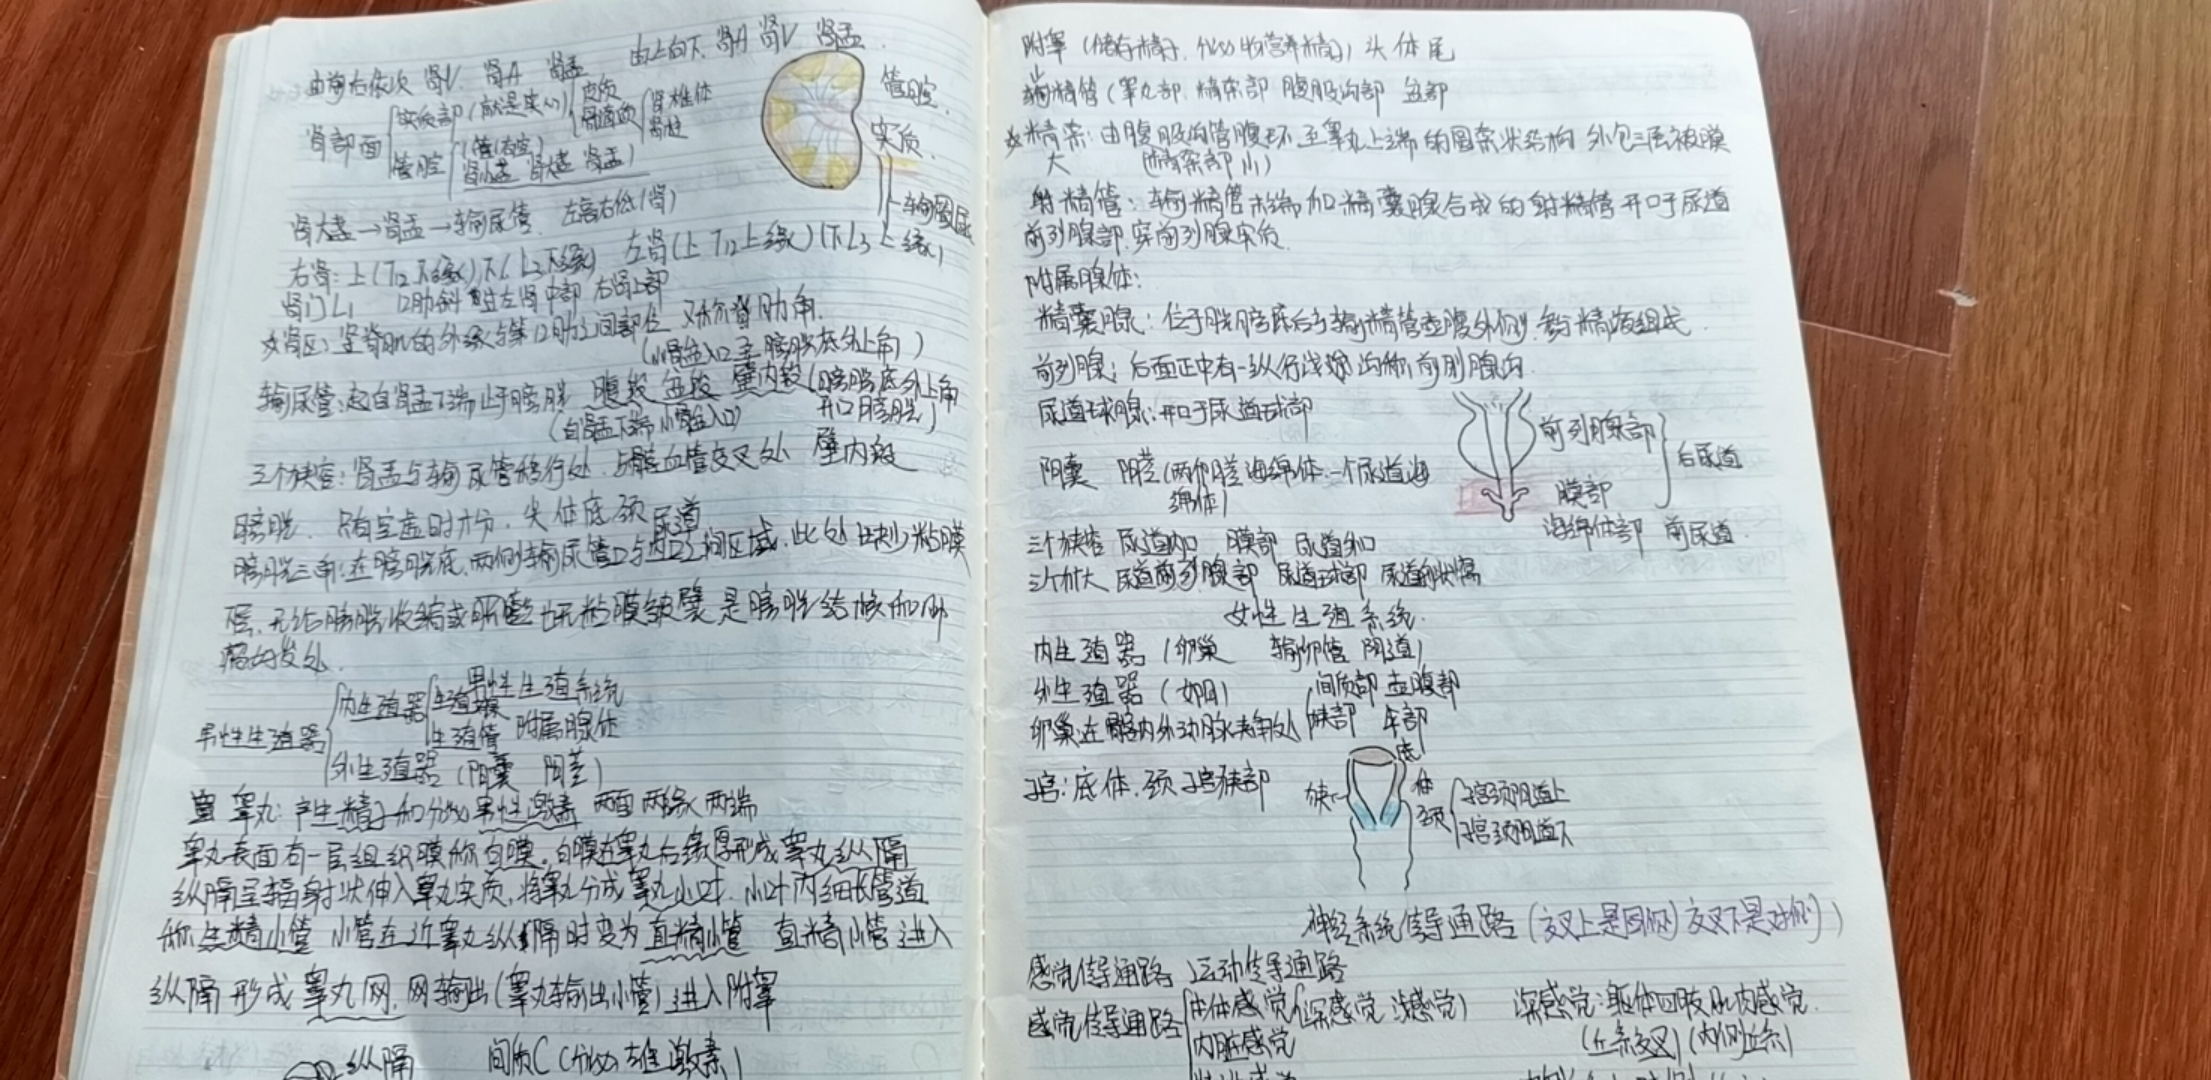 由前向后依次 肾V 肾A 肾盂 由上向下 肾A 肾V 肾盂
肾部面 实质部(就是实心) 皮质 髓质 肾椎体 肾柱
管腔 肾小盏 肾大盏 肾盂
管腔
实质
输尿
肾大盏→肾盂→输尿管 左高右低(肾)
右肾:上(T12下缘)下(L3下缘) 左肾(上T12上缘)(下L3上缘)
肾门L1 12肋斜过左肾中部 右肾上部
☆肾区:竖脊肌的外缘与第12肋之间部位 又称脊肋角.
(小骨盆入口至膀胱底外上角)
输尿管:起自肾盂下端止于膀胱 腹段 盆段 壁内段(膀胱底外上角
(自肾盂下端小骨盆入口) 开口膀胱)
三个狭窄:肾盂与输尿管移行处.与髂血管交叉处 壁内段
膀胱.只有空虚时才分.尖体底颈
尿道
膀胱三角:在膀胱底.两侧输尿管口与内口之间区域.此处缺少粘膜
层.无论膀胱收缩或膨胀也无粘膜皱襞是膀胱结核和肿
瘤的发处.
男性生殖系统
男性生殖器 内生殖器 生殖腺
生殖管 附属腺体
外生殖器(阴囊 阴茎)
睾丸:产生精子和分泌男性激素 两面 两缘 两端
睾丸表面有一层组织膜称白膜.白膜在睾丸后缘厚形成睾丸纵隔
纵隔呈辐射状伸入睾丸实质.将睾丸分成睾丸小叶.小叶内细长管道
称生精小管 小管在近睾丸纵隔时变为直精小管 直精小管进入
纵隔形成睾丸网.网输出(睾丸输出小管)进入附睾
纵隔 间质C(分泌雄激素)
附睾(储存精子.分泌物营养精子)头体尾
输精管(睾丸部.精索部 腹股沟部 盆部
☆精索:由腹股沟管腹环至睾丸上端的圆索状结构 外包三层被膜
大 (精索部小)
射精管:输精管末端加精囊腺合成的射精管开口于尿道
前列腺部.穿前列腺实质.
附属腺体:
精囊腺:位于膀胱底后与输精管壶腹外侧.参与精液组成.
前列腺:后面正中有一纵行浅沟称前列腺沟.
尿道球腺:开口于尿道球部
前列腺部
后尿道
膜部
海绵体部 前尿道.
阴囊 阴茎(两个阴茎海绵体.一个尿道海
绵体)
三个狭窄 尿道内口 膜部 尿道外口
三个扩大 尿道前列腺部 尿道球部 尿道舟状窝
女性生殖系统.
内生殖器(卵巢 输卵管 阴道)
外生殖器(女阴) 间质部 壶腹部
卵巢:在髂内外动脉夹角处 峡部 伞部
子宫:底体.颈 子宫峡部
底
体
峡
颈 子宫颈阴道上
子宫颈阴道下
神经系统传导通路(交叉上是同侧 交叉下是对侧)
感觉传导通路 运动传导通路
感觉传导通路 本体感觉(深感觉 浅感觉) 深感觉:躯体四肢肌肉感觉.
内脏感觉 (丘系交叉)(内侧丘系)